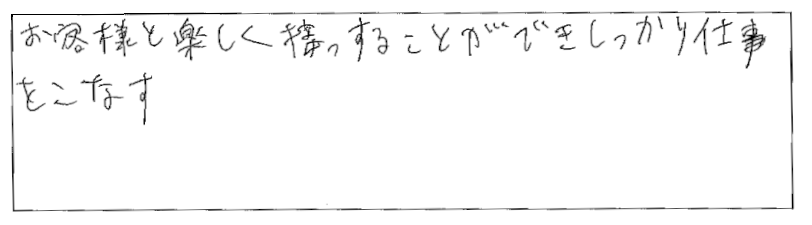 お客様と楽しく接っすることができしっかり仕事
をこなす